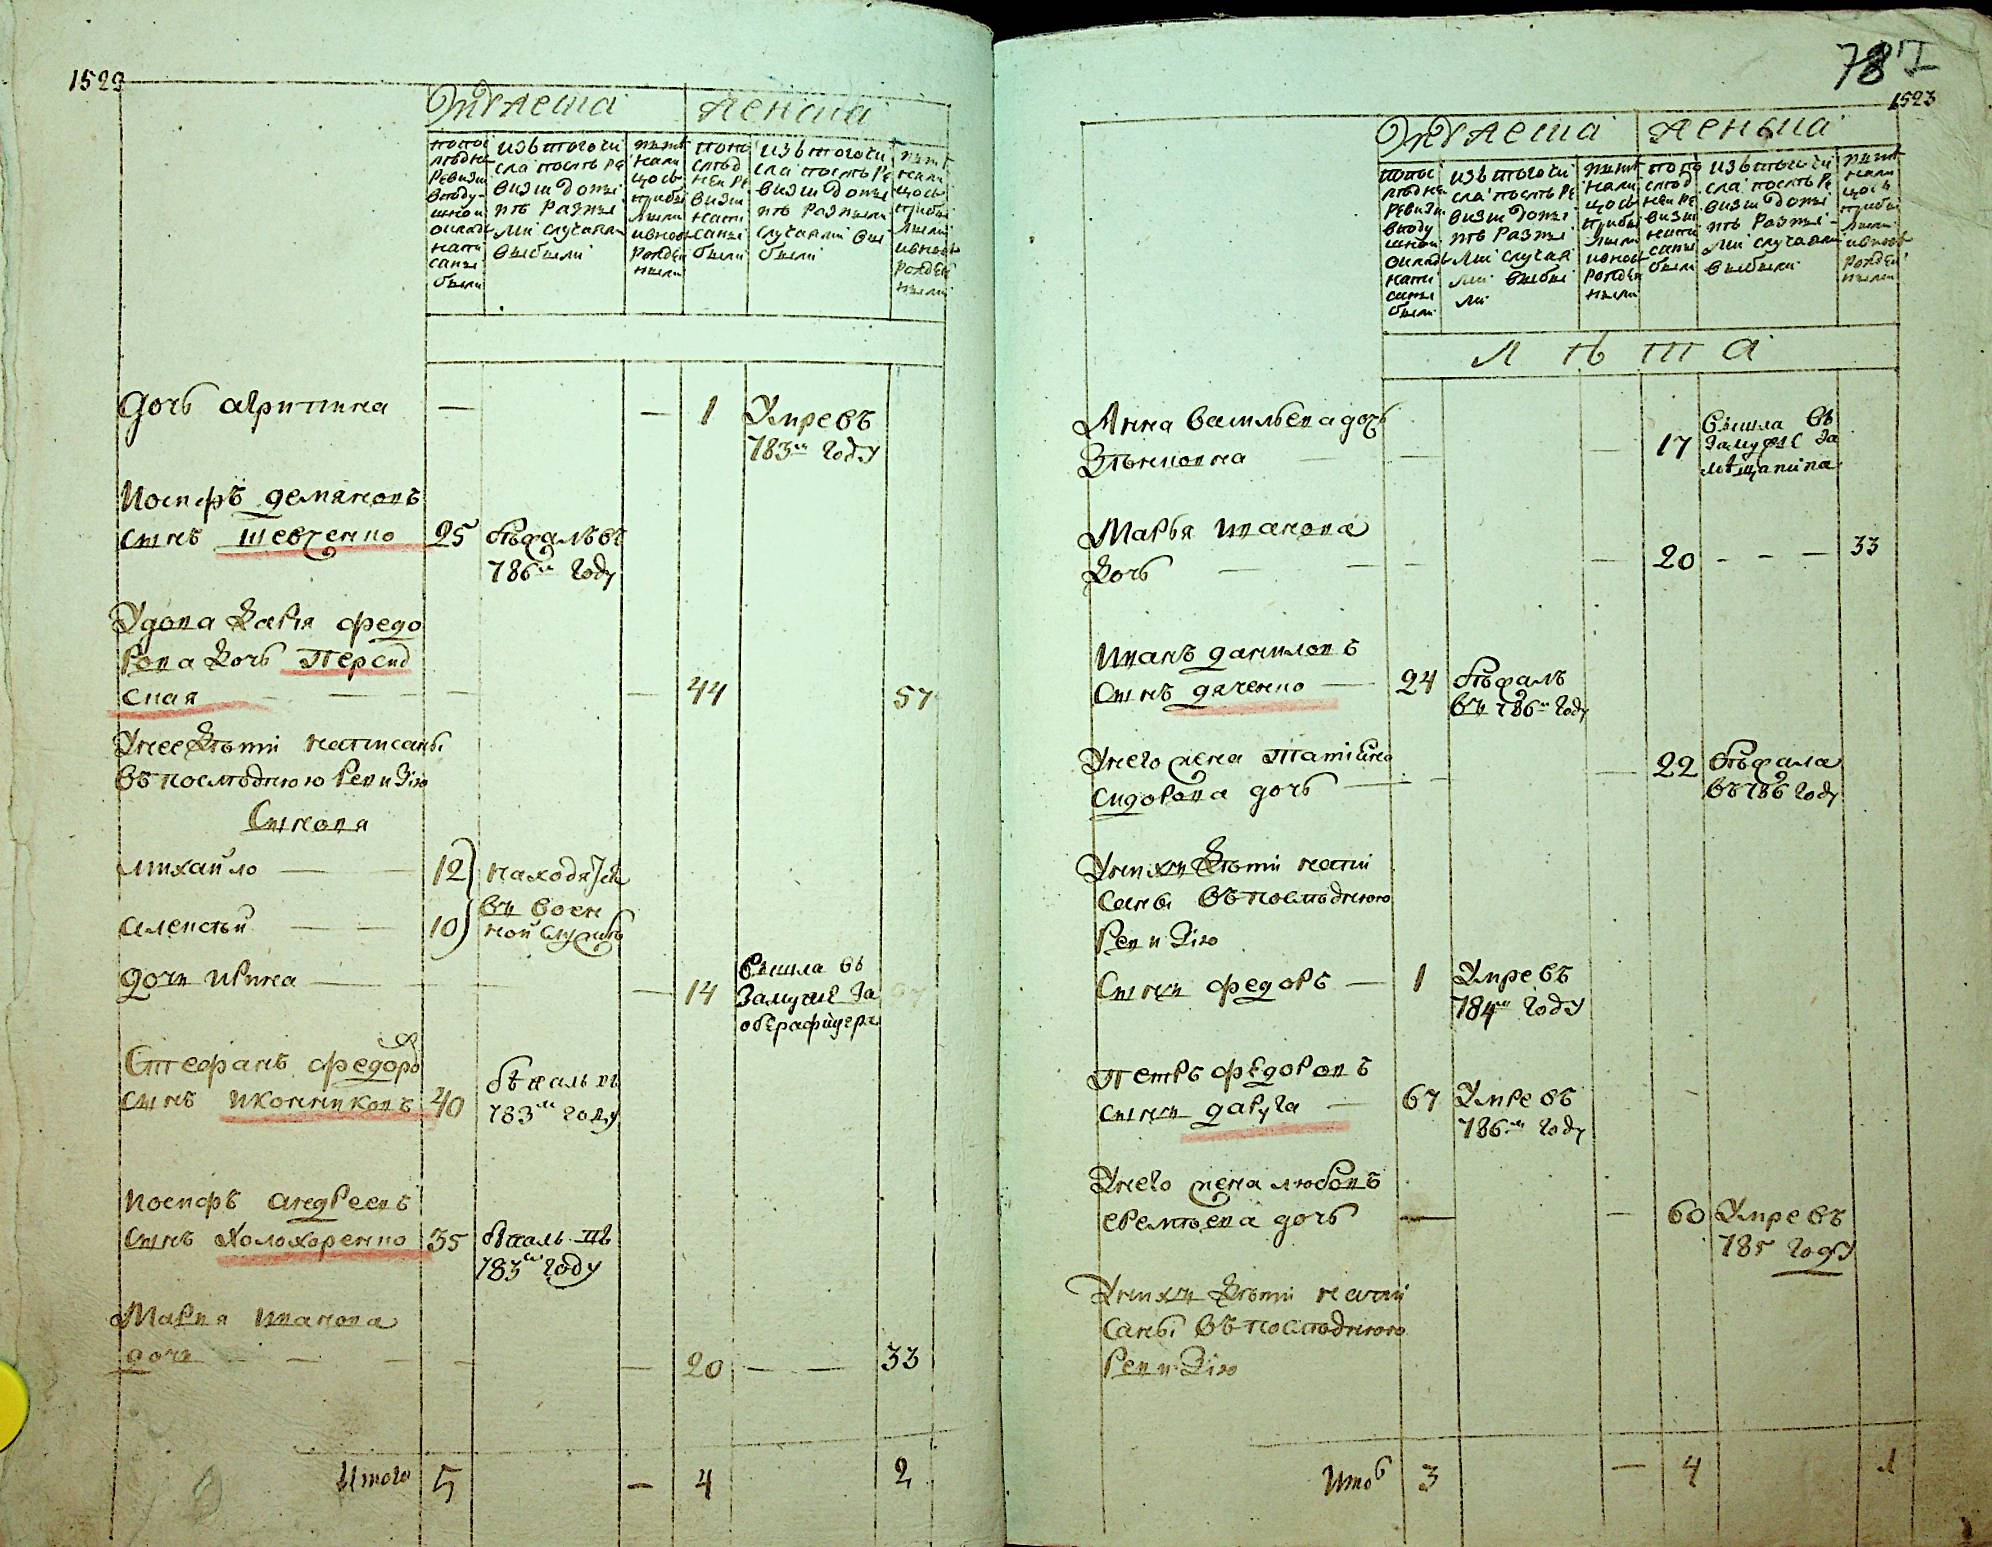 1529
Мужеска женска
попос
лѣдне
ревизи
вподу-
шном
окладе
напи
саны
были
изътогочи
сла послѣ ре
визи допы
нѣ разны
ми случаями
выбыли
ныне
нали
цось
прибы
лыми
ивновь
рожден
ными
попо
слѣд
неи ре
визи
напи
саны
были
изътогочи
сла послѣ ре
визи допы
нѣ разными
случаями вы
были
ныне
нали
цось
прибы
лыми
ивновь
рожден
ными
дочь агрипина — — 1 Умре въ
783м году
Иосифъ демяновъ
сынъ шевченко 25 бѣжалъ въ
786м году
Удова дарія федо
рова дочь Персид
ская — — — — 44 57
Унее дѣти написаны
въ последнюю ревизію
Сыновя
михайло — — 12) находятся
въ воен
алексѣй — — 10) ной службѣ
дочь ирина — — — — 14 вышла въ
замуже за
оберафицера
Стефанъ федоровъ
сынъ иконниковъ 40 бѣжалъ въ
783м году
Иосифъ андреевъ
сынъ холохоренко 35 бѣжалъ въ
783м году
Мария иванова
дочь — — — — — 20 — — 33
Итого 5 — 4 2
787
1523
Мужеска женьска
попос
лѣдне
ревизи
вподу
шном
окладе
напи
саны
были
изътогочи
сла послѣ ре
визи допы
нѣ разны
ми случая
ми выбы
ли
ныне
нали
цось
прибы
лыми
ивновь
рожден
ными
попо
слѣд
неи ре
визи
напи
саны
были
изътогочи
сла послѣ ре
визи допы
нѣ разны-
ми случаями
выбыли
ныне
нали
цось
прибы
лыми
ивновь
рожден
ными
Л ѣ т а
Анна васильева дочь
— — — 17 вышла въ
замужс за
мѣщанина
Марья иванова
дочь — — — — 20 - - — 33
Иванъ даниловъ
сынъ дяченко — 24 бѣжалъ
въ 786м году
Унего жена Татіана
сидорова дочь — — — 22 бѣжала
въ 786 году
Унихъ дѣти напи
саны въ последнюю
ревизію
Сынъ федоръ — 1 Умре въ
784м году
Петръ федоровъ
сынъ даруга — 67 Умре въ
786м году
Унего жена любовъ
еремѣева дочь — — 60 Умре въ
785 году
Унихъ дѣти напи
саны въ последнюю
ревизію
Итого 3 — 4 1